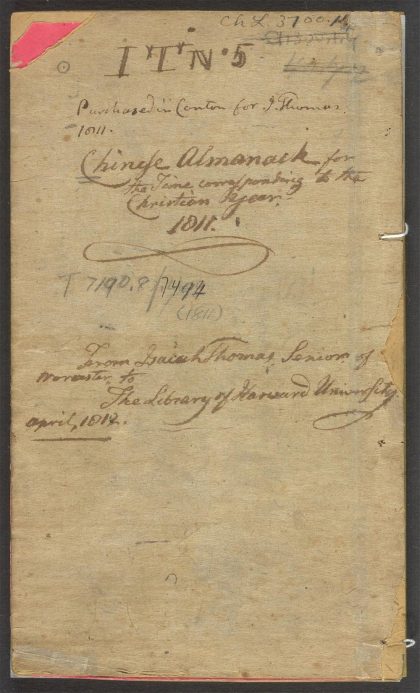 Ch L 3700.14
I T N. 5
Purchased in Canton for I. Thomas.
1811.
Chinese Almanack for
the Time corresponding to the
Christian Year.
1811.
T 7190.8/7494
(1811)
From Isaiah Thomas, Senior, of
Worcester, to
The Library of Harvard University,
april, 1812.